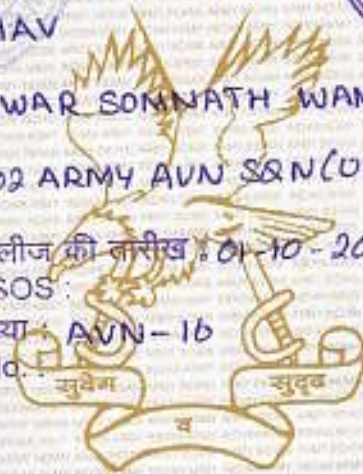 HAV
WAR SOMNATH WAM
02 ARMY AVN SQN (U
लीज की तारीख : 01-10-20
SOS :
या : AVN-16
No. :
सुवेग सुदृढ
व